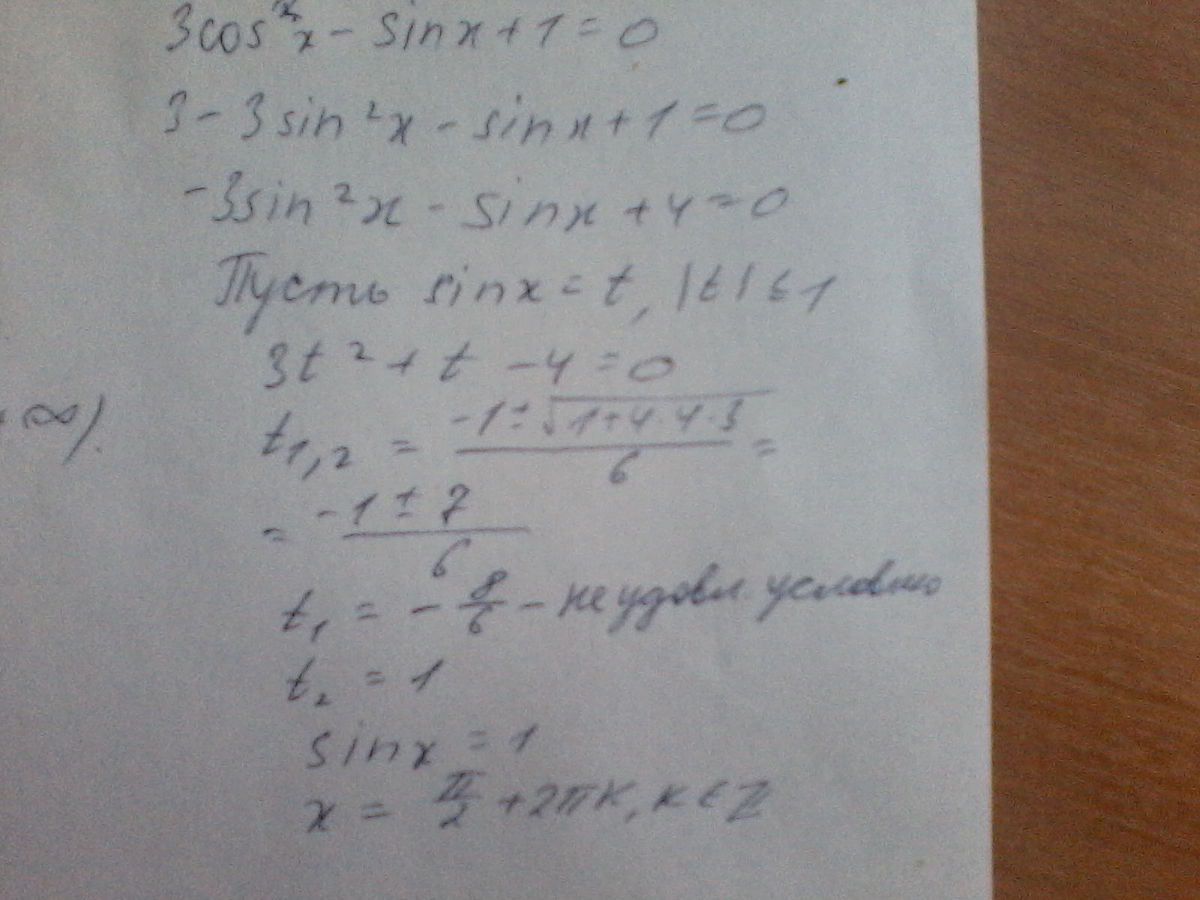 3cos²x - sinx + 1 = 0
3 - 3sin²x - sinx + 1 = 0
-3sin²x - sinx + 4 = 0
Пусть sinx = t, |t| ≤ 1
3t² + t - 4 = 0
∞).
t₁,₂ = (-1 ± √(1+4·4·3))/6 =
= (-1 ± 7)/6
t₁ = - 8/6 - не удовл. условию
t₂ = 1
sinx = 1
x = π/2 + 2πk, k ∈ Z